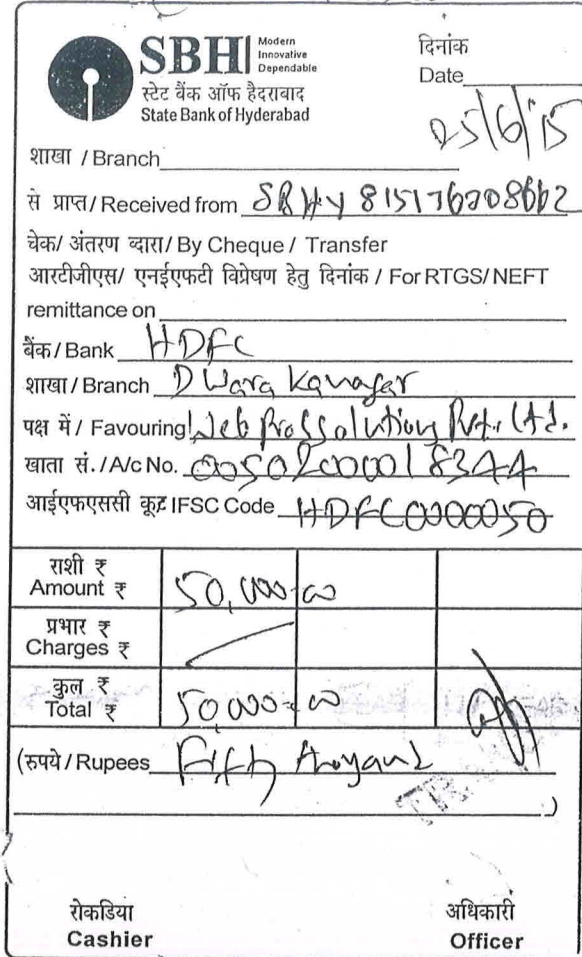 SBH Modern
Innovative
Dependable
स्टेट बैंक ऑफ हैदराबाद
State Bank of Hyderabad
दिनांक
Date
25/6/15
शाखा / Branch
से प्राप्त / Received from SBHY 815176208662
चेक/ अंतरण व्दारा/ By Cheque / Transfer
आरटीजीएस/ एनईएफटी विप्रेषण हेतु दिनांक / For RTGS/ NEFT
remittance on
बैंक / Bank HDFC
शाखा / Branch Dwarakanagar
पक्ष में / Favouring Web Pros Solutions Pvt. Ltd.
खाता सं. / A/c No. 00502000018344
आईएफएससी कूट IFSC Code HDFC0000050
राशी ₹
Amount ₹ 50,000-00
प्रभार ₹
Charges ₹
कुल ₹
Total ₹ 50,000-00
(रुपये / Rupees Fifty thousand
)
रोकडिया अधिकारी
Cashier Officer